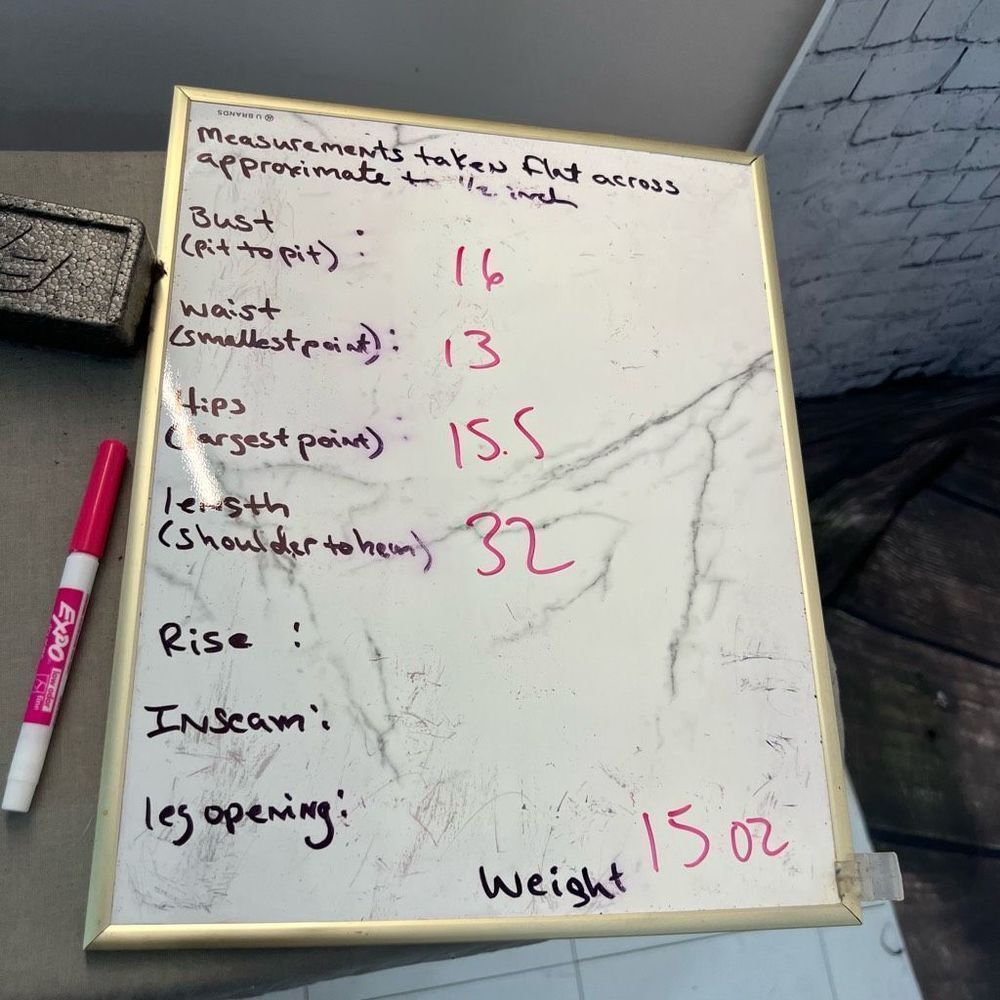 U BRANDS
Measurements taken flat across
approximate to 1/2 inch
Bust
(pit to pit) : 16
waist
(smallest point) : 13
Hips
(largest point) : 15.5
length
(shoulder to hem) 32
Rise :
Inseam :
leg opening :
Weight 15 oz
EXPO
low odor
fine